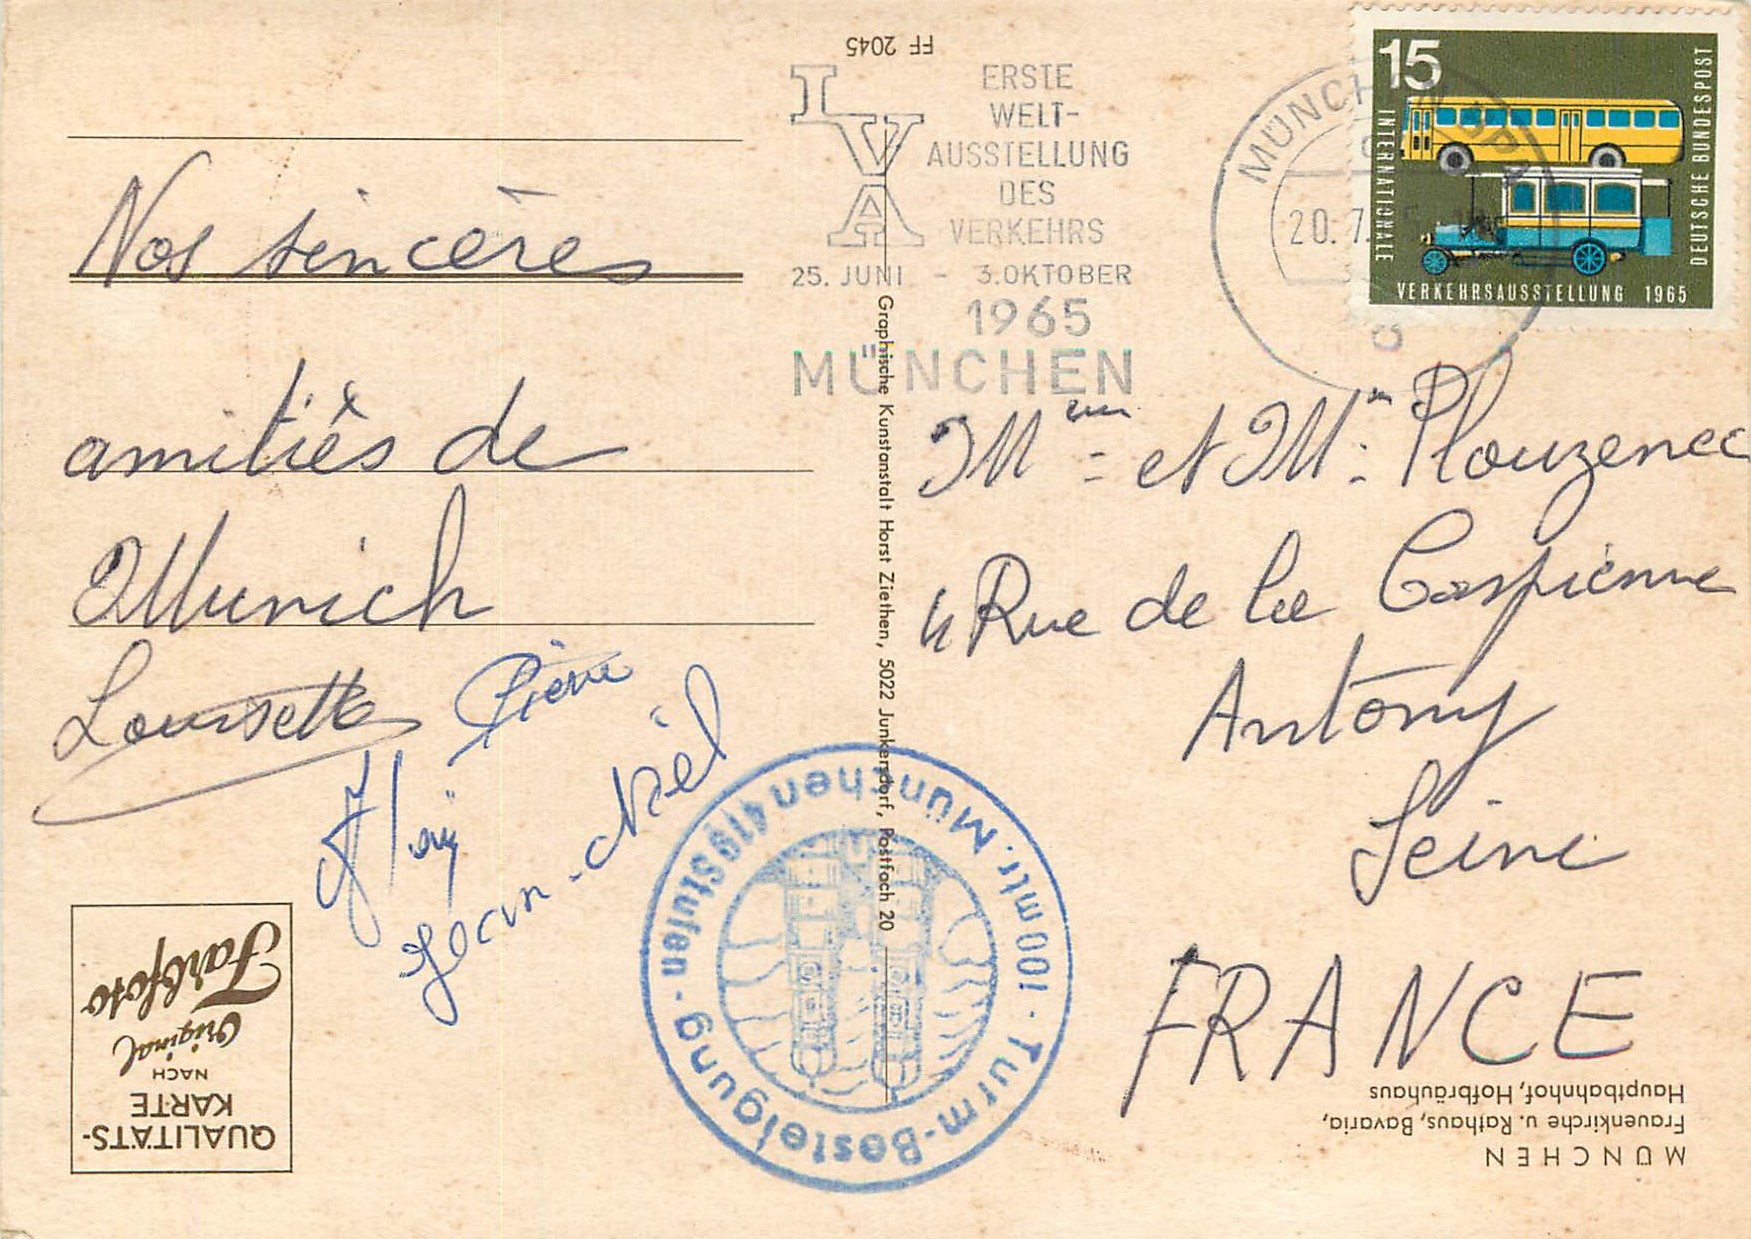 FF 2045
Nos sincères
amitiés de
Munich
Lousette Pierre
Jean-Noël
LVA
ERSTE
WELT-
AUSSTELLUNG
DES
VERKEHRS
25. JUNI - 3. OKTOBER
1965
MÜNCHEN
MÜNCHEN
20.7.
15
INTERNATIONALE
VERKEHRSAUSSTELLUNG 1965
DEUTSCHE BUNDESPOST
Mme et Mr Plouzenec
4 Rue de la Caspienne
Antony
Seine
FRANCE
Graphische Kunstanstalt Horst Ziethen, 5022 Junkersdorf, Postfach 20
Turm-Besteigung · 419 Stufen
München · 100 mtr.
QUALITÄTS-
KARTE
NACH
Original
Farbfoto
MÜNCHEN
Frauenkirche u. Rathaus, Bavaria,
Hauptbahnhof, Hofbräuhaus